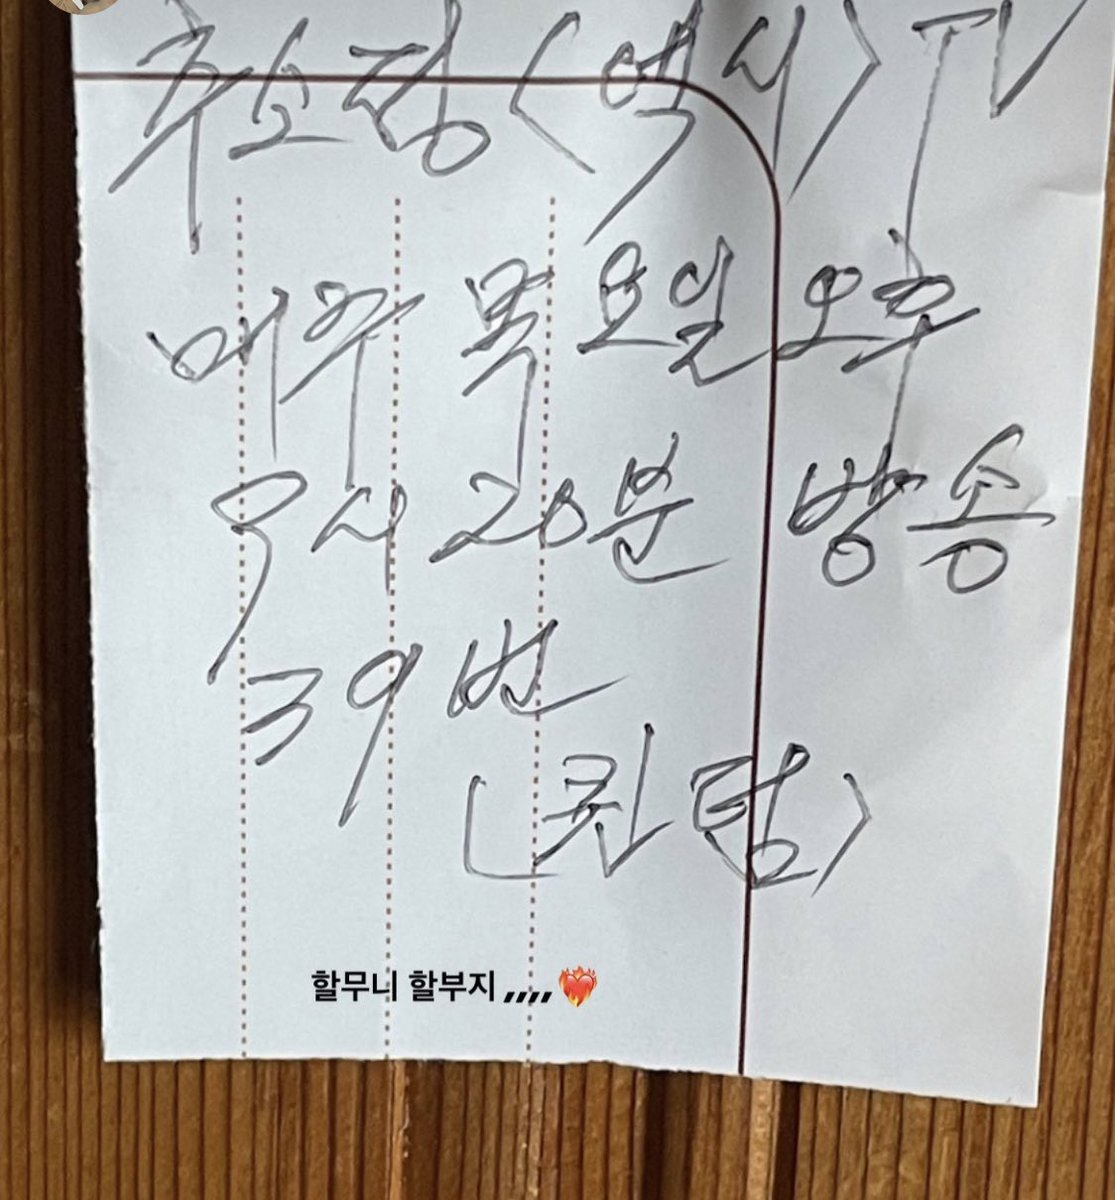 추소정 (역시) TV
매주 목요일 오후
9시 20분 방송
39번
(퀸덤)
할무니 할부지 ,,,,❤️‍🔥